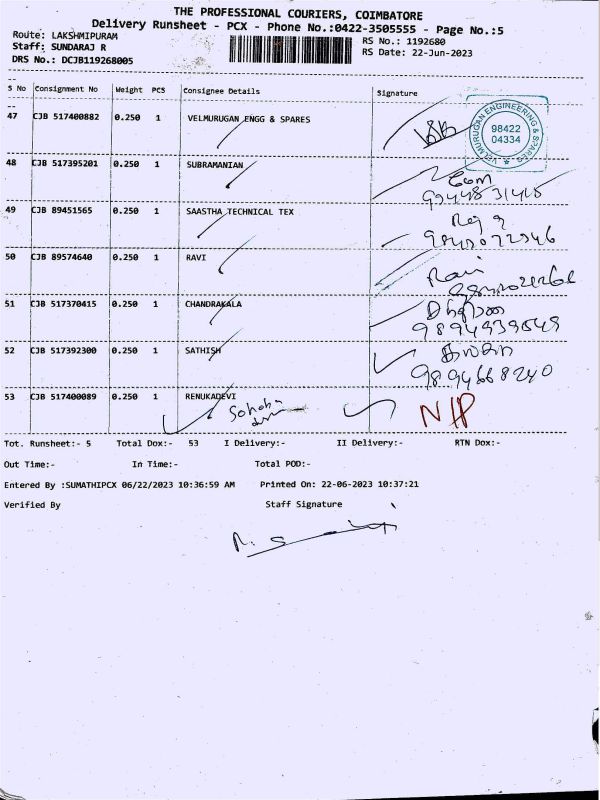 THE PROFESSIONAL COURIERS, COIMBATORE
Delivery Runsheet - PCX - Phone No.:0422-3505555 - Page No.:5
Route: LAKSHMIPURAM
RS No.: 1192680
Staff: SUNDARAJ R
RS Date: 22-Jun-2023
DRS No.: DCJB119268005
S No Consignment No Weight PCS Consignee Details Signature
47 CJB 517400882 0.250 1 VELMURUGAN ENGG & SPARES
VELMURUGAN ENGINEERING & SPARES
98422
04334
48 CJB 517395201 0.250 1 SUBRAMANIAN
49 CJB 89451565 0.250 1 SAASTHA TECHNICAL TEX
50 CJB 89574640 0.250 1 RAVI
Ravi
51 CJB 517370415 0.250 1 CHANDRAKALA
9894939549
52 CJB 517392300 0.250 1 SATHISH
9894668240
53 CJB 517400089 0.250 1 RENUKADEVI
N/P
Tot. Runsheet:- 5 Total Dox:- 53 I Delivery:- II Delivery:- RTN Dox:-
Out Time:- In Time:- Total POD:-
Entered By :SUMATHIPCX 06/22/2023 10:36:59 AM Printed On: 22-06-2023 10:37:21
Verified By Staff Signature